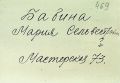 469
Бабина
Мария Сельвест
Мастерская 73.